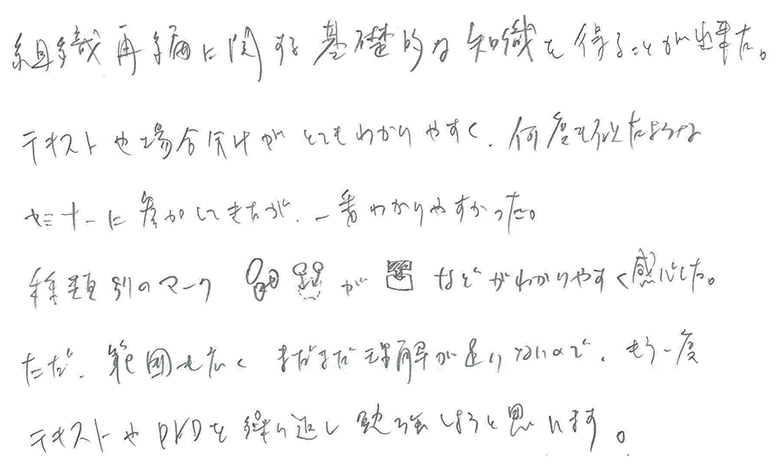 組織再編に関する基礎的な知識を得ることが出来た。
テキストや場合分けがとてもわかりやすく、何度も似たような
セミナーに参加してきたが、一番わかりやすかった。
種類別のマーク が などがわかりやすく感心した。
ただ、範囲も広くまだまだ理解が足りないので、もう一度
テキストやDVDを繰り返し勉強しようと思います。